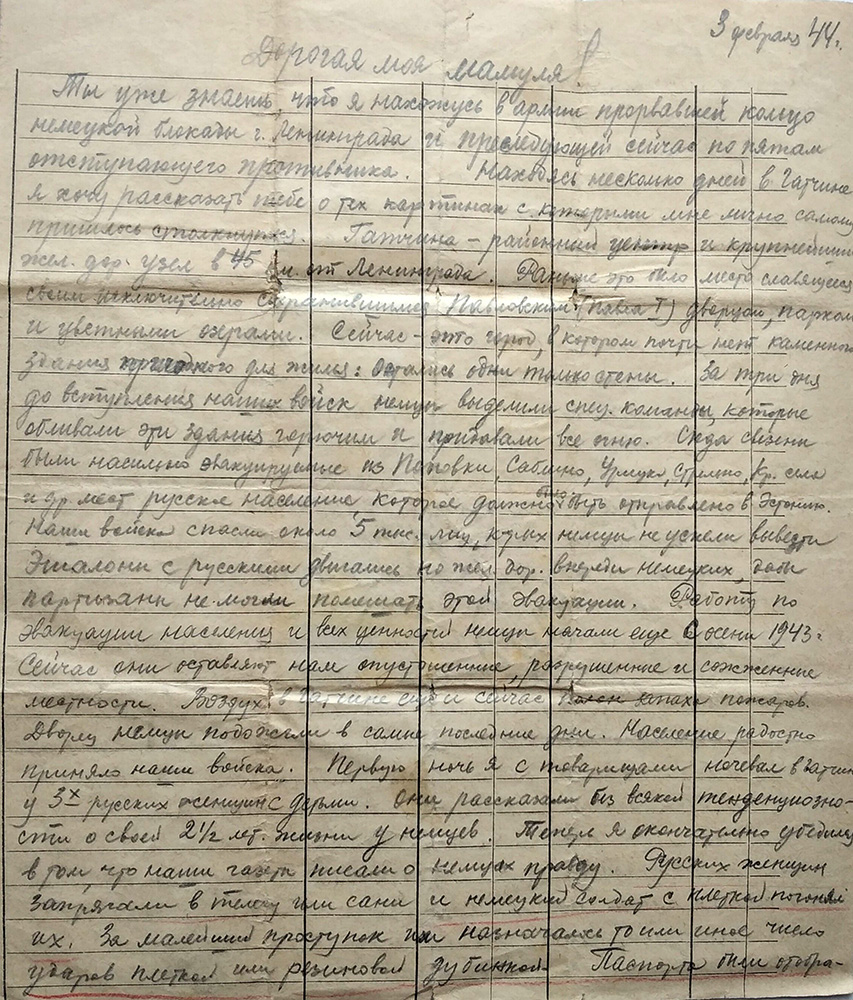 3 февраля 44 г.
Дорогая моя мамуля!
Ты уже знаешь, что я нахожусь в армии прорвавшей кольцо
немецкой блокады г. Ленинграда и преследующей сейчас по пятам
отступающего противника. Находясь несколько дней в Гатчине
я хочу рассказать тебе о тех картинах с которыми мне лично самому
пришлось столкнуться. Гатчина – районный центр и крупнейший
жел. дор. узел в 45 км. от Ленинграда. Раньше это было место славящееся
своим исключительно сохранившимся Павловским (Павла I) дворцом, парком
и цветными озерами. Сейчас – это город, в котором почти нет каменного
здания пригодного для жилья: остались одни только стены. За три дня
до вступления наших войск немцы выделили спец. команды, которые
обливали эти здания горючим и придавали все огню. Сюда свезены
были насильно эвакуируемые из Поповки, Саблино, Стрельно, Кр. села
и др. мест русское население, которое должно было быть отправлено в Эстонию.
Наши войска спасли около 5 тыс. лиц, к-рых немцы не успели вывезти
Эшалоны с русскими двигались по жел. дор. впереди немецких, дабы
партизаны не могли помешать этой эвакуации. Работу по
эвакуации населения и всех ценностей немцы начали еще с осени 1943 г
Сейчас они оставляют нам опустошенные, разрушенные и сожженные
местности. Воздух в Гатчине еще и сейчас полон запаха пожаров.
Дворец немцы подожгли в самые последние дни. Население радостно
приняло наши войска. Первую ночь я с товарищами ночевал в Гатчине
у 3х русских женщин с детьми. Они рассказали без всякой тенденциозно-
сти о своей 2 1/2 лет. жизни у немцев. Теперь я окончательно убедился
в том, что наши газеты писали о немцах правду. Русских женщин
запрягали в телегу или сани и немецкий солдат с плеткой погонял
их. За малейший проступок им назначалось то или иное число
ударов плеткой или резиновой дубинкой. Паспорта были отобра-